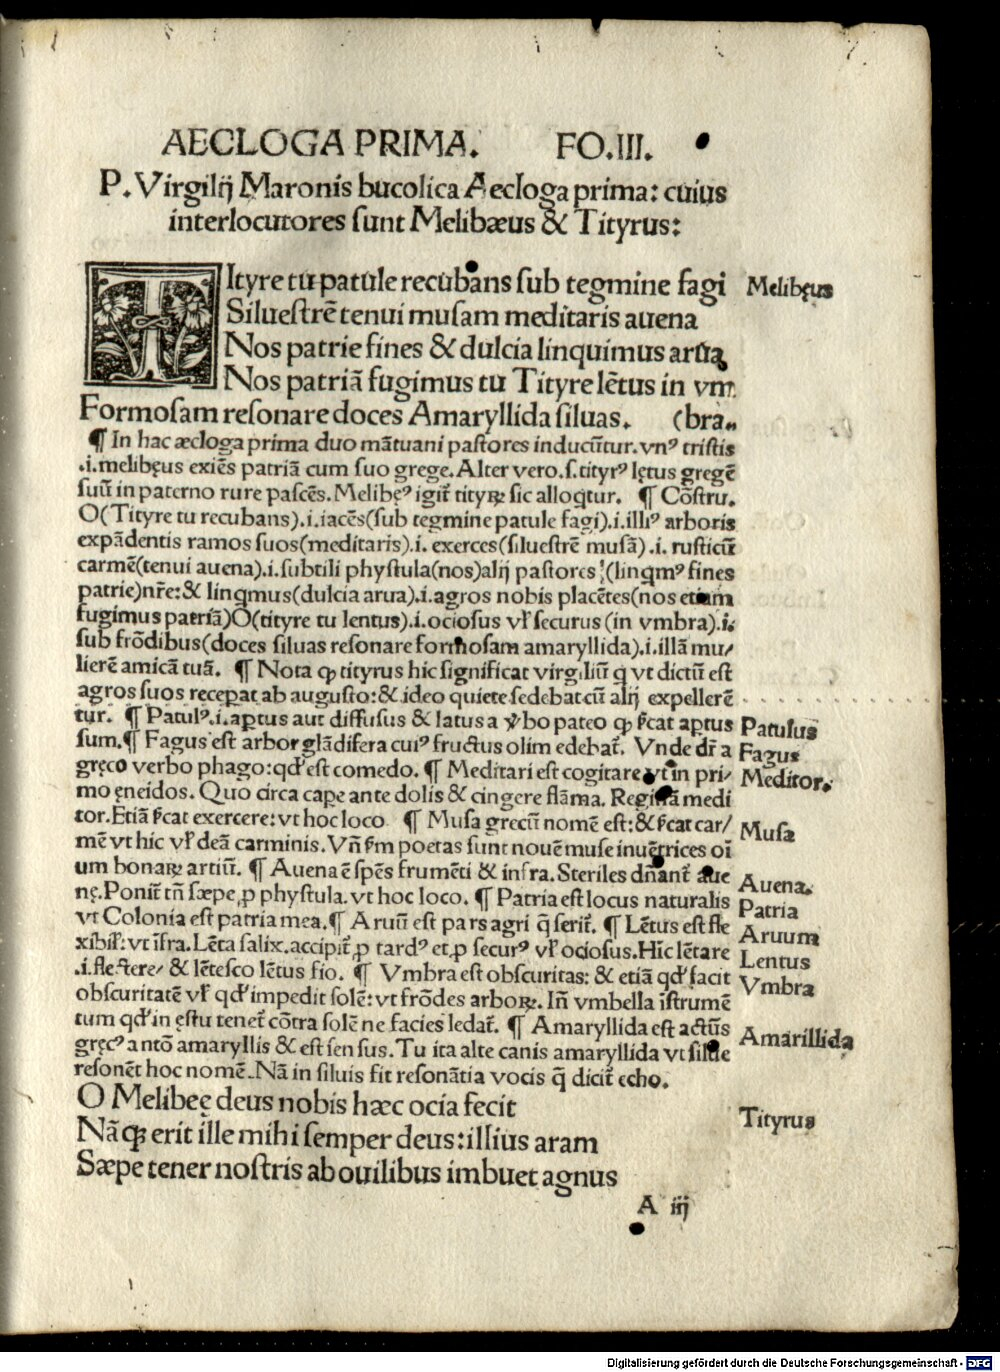 AECLOGA PRIMA. FO.III.
P. Virgilij Maronis bucolica Aecloga prima: cuius
interlocutores sunt Melibæus & Tityrus:
TItyre tu patule recubans sub tegmine fagi Melibęus
Siluestrē tenui musam meditaris auena
Nos patrie fines & dulcia linquimus arua
Nos patriā fugimus tu Tityre lētus in vm
Formosam resonare doces Amaryllida siluas. (bra.
¶ In hac æcloga prima duo mātuani pastores inducūtur. vnꝰ tristis
.i. melibęus exiēs patriā cum suo grege. Alter vero .s. tityrꝰ lętus gregē
suū in paterno rure pascēs. Melibęꝰ igit᷑ tityꝝ sic alloqtur. ¶ Cōstru.
O(Tityre tu recubans).i.iacēs(sub tegmine patule fagi).i.illiꝰ arboris
expādentis ramos suos(meditaris).i. exerces(siluestrē musā).i. rusticū
carmē(tenui auena).i.subtili phystula(nos)alij pastores (linqmꝰ fines
patrie)nr̄e:& linqmus(dulcia arua).i.agros nobis placētes(nos etiam
fugimus patriā)O(tityre tu lentus).i.ociosus vł securus(in vmbra).i.
sub frōdibus(doces siluas resonare formosam amaryllida).i.illā mu/
lierē amicā tuā. ¶ Nota ꝙ tityrus hic significat virgiliū q vt dictū est
agros suos recepat ab augusto:& ideo quiete sedebat cū alij expellerē
tur. ¶ Patulꝰ.i.aptus aut diffusus & latus a v̓bo pateo ꝙ s̓cat aptus Patulus
sum.¶ Fagus est arbor glādifera cuiꝰ fructus olim edebat᷑. Vnde dr̄ a Fagus
gręco verbo phago:qd̓ est comedo. ¶ Meditari est cogitare vt in pri/ Meditor.
mo ęneidos. Quo circa cape ante dolis & cingere flāma. Reginā medi
tor. Etiā s̓cat exercere: vt hoc loco ¶ Musa grecū nomē est:& s̓cat car/ Musa
mē vt hic vł deā carminis. Vn̄ s̓m poetas sunt nouē muse inuētrices oī
um bonaꝝ artiū. ¶ Auena ē spēs frumēti & infra. Steriles dn̄ant᷑ aue Auena.
nę. Ponit᷑ tn̄ sæpe ꝓ phystula. vt hoc loco. ¶ Patria est locus naturalis Patria
vt Colonia est patria mea.¶ Aruū est pars agri q̄ serit᷑. ¶ Lētus est fle Aruum
xibił: vt īfra. Lēta salix. accipit᷑ ꝓ tardꝰ et ꝓ securꝰ vł ociosus. Hic lētare Lentus
.i. flectere/ & lētesco lētus fio. ¶ Vmbra est obscuritas: & etiā qd̓ facit Vmbra
obscuritatē vł qd̓ impedit solē: vt frōdes arboꝝ. In̄ vmbella īstrumē
tum qd̓ in ęstu tenet᷑ cōtra solē ne facies ledat᷑. ¶ Amaryllida est actūs Amarillida
gręcꝰ a ntō amaryllis & est sensus. Tu ita alte canis amaryllida vt silue
resonēt hoc nomē. Nā in siluis fit resonātia vocis q̄ dicit᷑ echo.
O Melibeę deus nobis hæc ocia fecit Tityrus
Nāqꝫ erit ille mihi semper deus: illius aram
Sæpe tener nostris ab ouilibus imbuet agnus
A iij
Digitalisierung gefördert durch die Deutsche Forschungsgemeinschaft - DFG